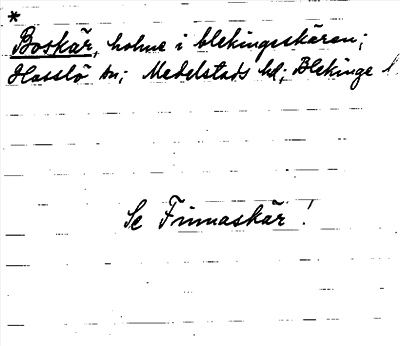 *
Boskär, holme i blekingeskären;
Hasslö sn; Medelstads hd; Blekinge l
Se Finnaskär!